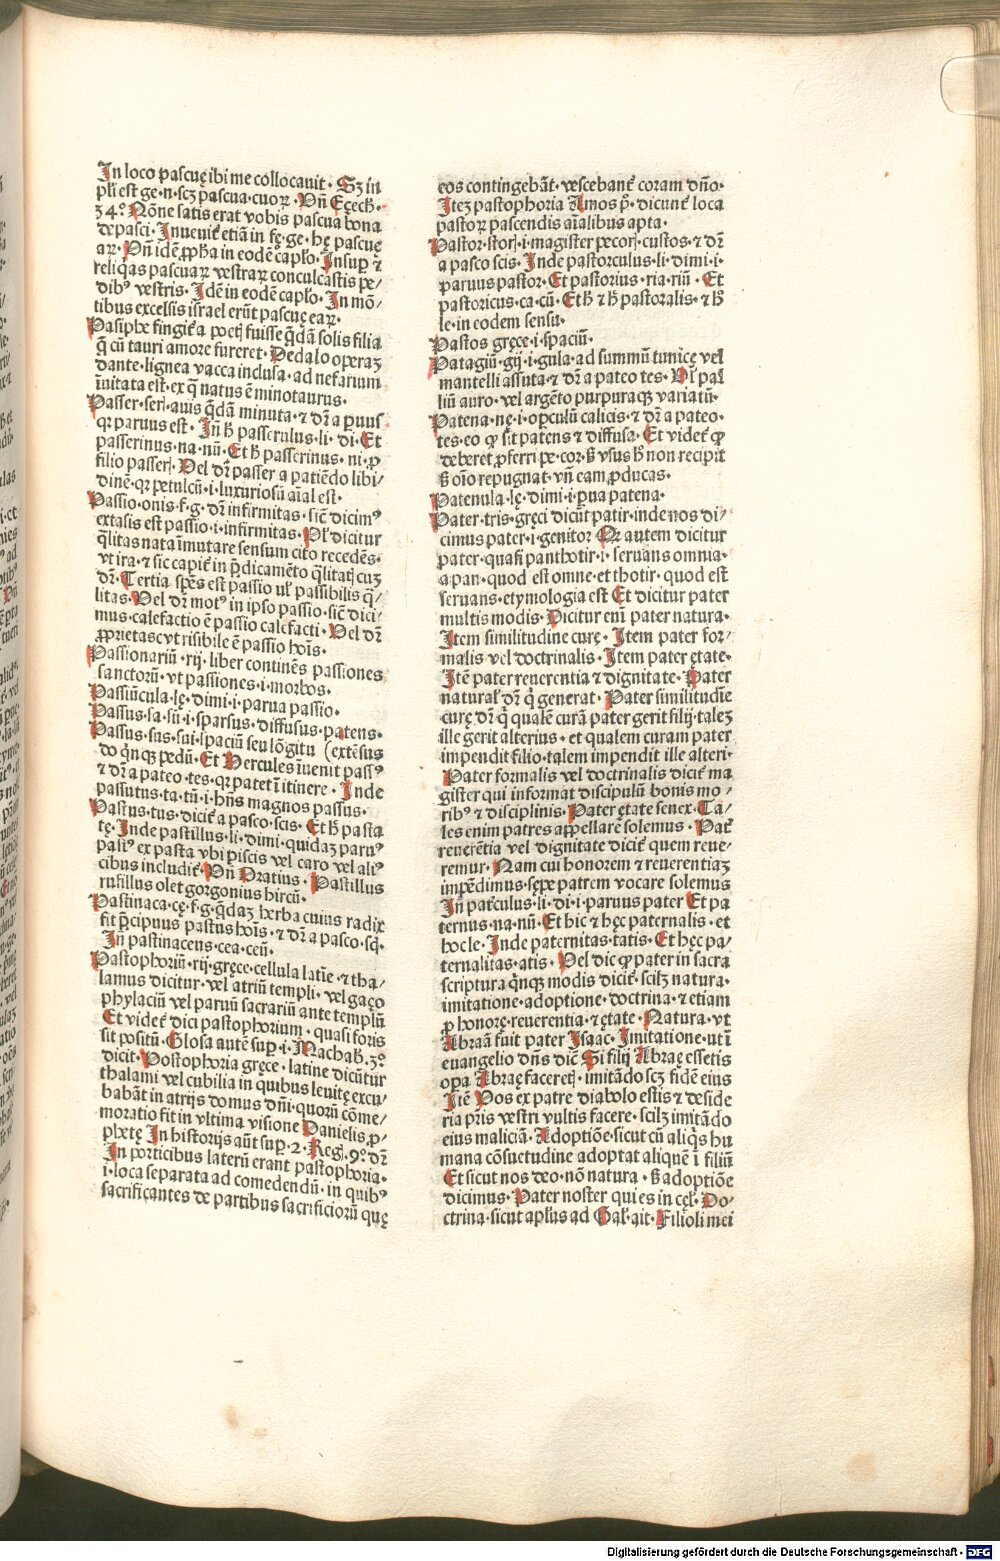 In loco pascuę ibi me collocavit · Sꝫ in
pli est ge·n·scꝫ pascua·cuoꝝ· Vn̄ Eçech·
34° Nōne satis erat vobis pascua bona
depasci· Inuenit̄ etiā in fę·ge·hę pascuę
aꝝ· Vn̄ idē ꝓpħa in eodē capło· Insuꝑ ⁊
reliq̄as pascuaꝝ vestraꝝ conculcastis pe⸗
dibꝰ vestris· Idē in eodē capło· In mō⸗
tibus excelsis israel erūt pascuę eaꝝ·
Pasiphe fingit̄ a poetꝭ fuisse q̄dā solis filia
q̄ cū tauri amore fureret· Dedalo operaꝫ
dante·lignea vacca inclusa·ad nefarium
īuitata est·ex q̄ natus ē minotaurus·
Passer·serꝭ·auis q̄dā minuta·⁊ dr̄ a ꝑuus
qꝛ paruus est· In̄ ħ passerulus·li·di· Et
passerinus·na·nū· Et ħ passerinus·ni·ꝓ
filio passerꝭ· Vel dr̄ passer a patiēdo libi⸗
dinē·qꝛ petulcū·i·luxuriosū aīal est·
Passio·onis·f·g· dr̄ infirmitas·sic̄ dicimꝰ
extasis est passio·i·infirmitas· Vł dicitur
q̄litas nata īmutare sensum cito recedēs·
vt ira·⁊ sic capit̄ in p̄dicamēto q̄litatꝭ cuꝫ
dr̄· Tertia sp̄es est passio uł passibilis q̄⸗
litas· Vel dr̄ motꝰ in ipso passio·sic̄ dici⸗
mus·calefactio ē passio calefacti· Vel dr̄
ꝓprietas·vt risibile ē passio hoīs·
Passionariū·rij·liber continēs passiones
sanctorū·vt passiones·i·morbos·
Passiūcula·lę·dimi·i·parua passio·
Passus·sa·sū·i·sparsus·diffusus·patens·
Passus·sus·sui·spaciū seu lōgitu (extēsus
do q̄nqꝫ pedū· Et Hercules īuenit passꝰ
⁊ dr̄ a pateo·tes·qꝛ patet ī itinere· Inde
passutus·ta·tū·i·hn̄s magnos passus·
Pastus·tus·dicit̄ a pasco·scis· Et ħ pasta
tę·Inde pastillus·li·dimi·quidaꝫ paruꝰ
pastꝰ ex pasta vbi piscis vel caro vel aliꝰ
cibus includit̄· Vn̄ Oratius· Pastillus
rufillus olet gorgonius hircū·
Pastinaca·cę·f·g·q̄daꝫ herba cuius radix
fit p̄cipuus pastus hoīs·⁊ dr̄ a pasco·sꝗ·
In̄ pastinaceus·cea·ceū·
Pastophoriū·rij·gręce·cellula latīe·⁊ tha⸗
lamus dicitur·vel atriū templi·vel gaço
phylaciū vel paruū sacrariū ante templū
Et videt̄ dici pastophorium·quasi foris
sit positū· Glosa autē suꝑ·i·Machab·3°
dicit· Postophoria gręce·latine dicūtur
thalami vel cubilia in quibus leuitę excu⸗
babāt in atrijs domus dn̄i·quorū cōme⸗
moratio fit in vltima visione Danielis·ꝓ⸗
phetę In historijs aūt suꝑ·2·Reg·9° dr̄
In porticibus laterū erant pastophoria·
i·loca separata ad comedendū·in quibꝰ
sacrificantes de partibus sacrificiorū quę
eos contingebāt·vescebant̄ coram dn̄o·
Iteꝫ pastophoria Amos ꝓ· dicunt̄ loca
pastoꝝ pascendis aīalibus apta·
Pastor·storꝭ·i·magister pecorꝭ·custos·⁊ dr̄
a pasco scis· Inde pastorculus·li·dimi·i·
paruus pastor· Et pastorius·ria·riū· Et
pastoricus·ca·cū· Et ħ ⁊ ħ pastoralis·⁊ ħ
le·in eodem sensu·
Pastos gręce·i·spaciū·
Patagiū·gij·i·gula·ad summū tunicę vel
mantelli assuta·⁊ dr̄ a pateo tes· Vł pal
liū auro·vel argēto purpuraqꝫ variatū·
Patena·nę·i·oꝑculū calicis·⁊ dr̄ a pateo·
tes·eo ꝙ sit patens ⁊ diffusa· Et videt̄ ꝙ
deberet ꝓferri pe·cor·ꝫ vsus ħ non recipit
ꝫ oīo repugnat·vn̄ eam ꝓducas·
Patenula·lę·dimi·i·ꝑua patena·
Pater·tris·gręci dicūt patir·inde nos di⸗
cimus pater·i·genitor Qꝛ autem dicitur
pater·quasi panthotir·i·seruans omnia·
a pan·quod est omne·et thotir·quod est
seruans·etymologia est Et dicitur pater
multis modis· Dicitur eni̅ pater natura·
Item similitudine curę· Item pater for⸗
malis vel doctrinalis· Item pater ętate·
Itē pater reuerentia ⁊ dignitate· Pater
naturał dr̄ q̄ generat· Pater similitudīe
curę dr̄ q̄ qualē curā pater gerit filij·taleꝫ
ille gerit alterius·et qualem curam pater
impendit filio·talem impendit ille alteri·
Pater formalis vel doctrinalis dicit̄ ma
gister qui informat discipulū bonis mo⸗
ribꝰ ⁊ disciplinis· Pater ętate senex· Ta⸗
les enim patres appellare solemus· Pat̄
reuerētia vel dignitate dicit̄ quem reue⸗
remur· Nam cui honorem ⁊ reuerentiaꝫ
impēdimus·sępe patrem vocare solemus
In̄ pat̄culus·li·di·i·paruus pater Et pa
ternus·na·nū· Et hic ⁊ hęc paternalis·et
hoc le· Inde paternitas·tatis· Et hęc pa⸗
ternalitas·atis· Vel dic ꝙ pater in sacra
scriptura q̄nqꝫ modis dicit̄·scilꝫ natura·
imitatione·adoptione·doctrina·⁊ etiam
ꝓ honore·reuerentia·⁊ ętate· Natura·vt
Abraā fuit pater Isaac· Imitatione·ut ī
euangelio dn̄s dic̄ Si filij Abraę essetis
oꝑa Abraę faceretꝭ·imitādo scꝫ fidē eius
Itē Vos ex patre diabolo estis ⁊ deside
ria pr̄is vestri vultis facere·scilꝫ imitādo
eius maliciā· Adoptiōe·sicut cū aliq̄s hu
mana cōsuetudine adoptat aliquē ī filiū
Et sicut nos deo·nō natura·ꝫ adoptiōe
dicimus· Pater noster qui es in cęł· Do⸗
ctrina·sicut apłus ad Gal·ait· Filioli mei
Digitalisierung gefördert durch die Deutsche Forschungsgemeinschaft - DFG